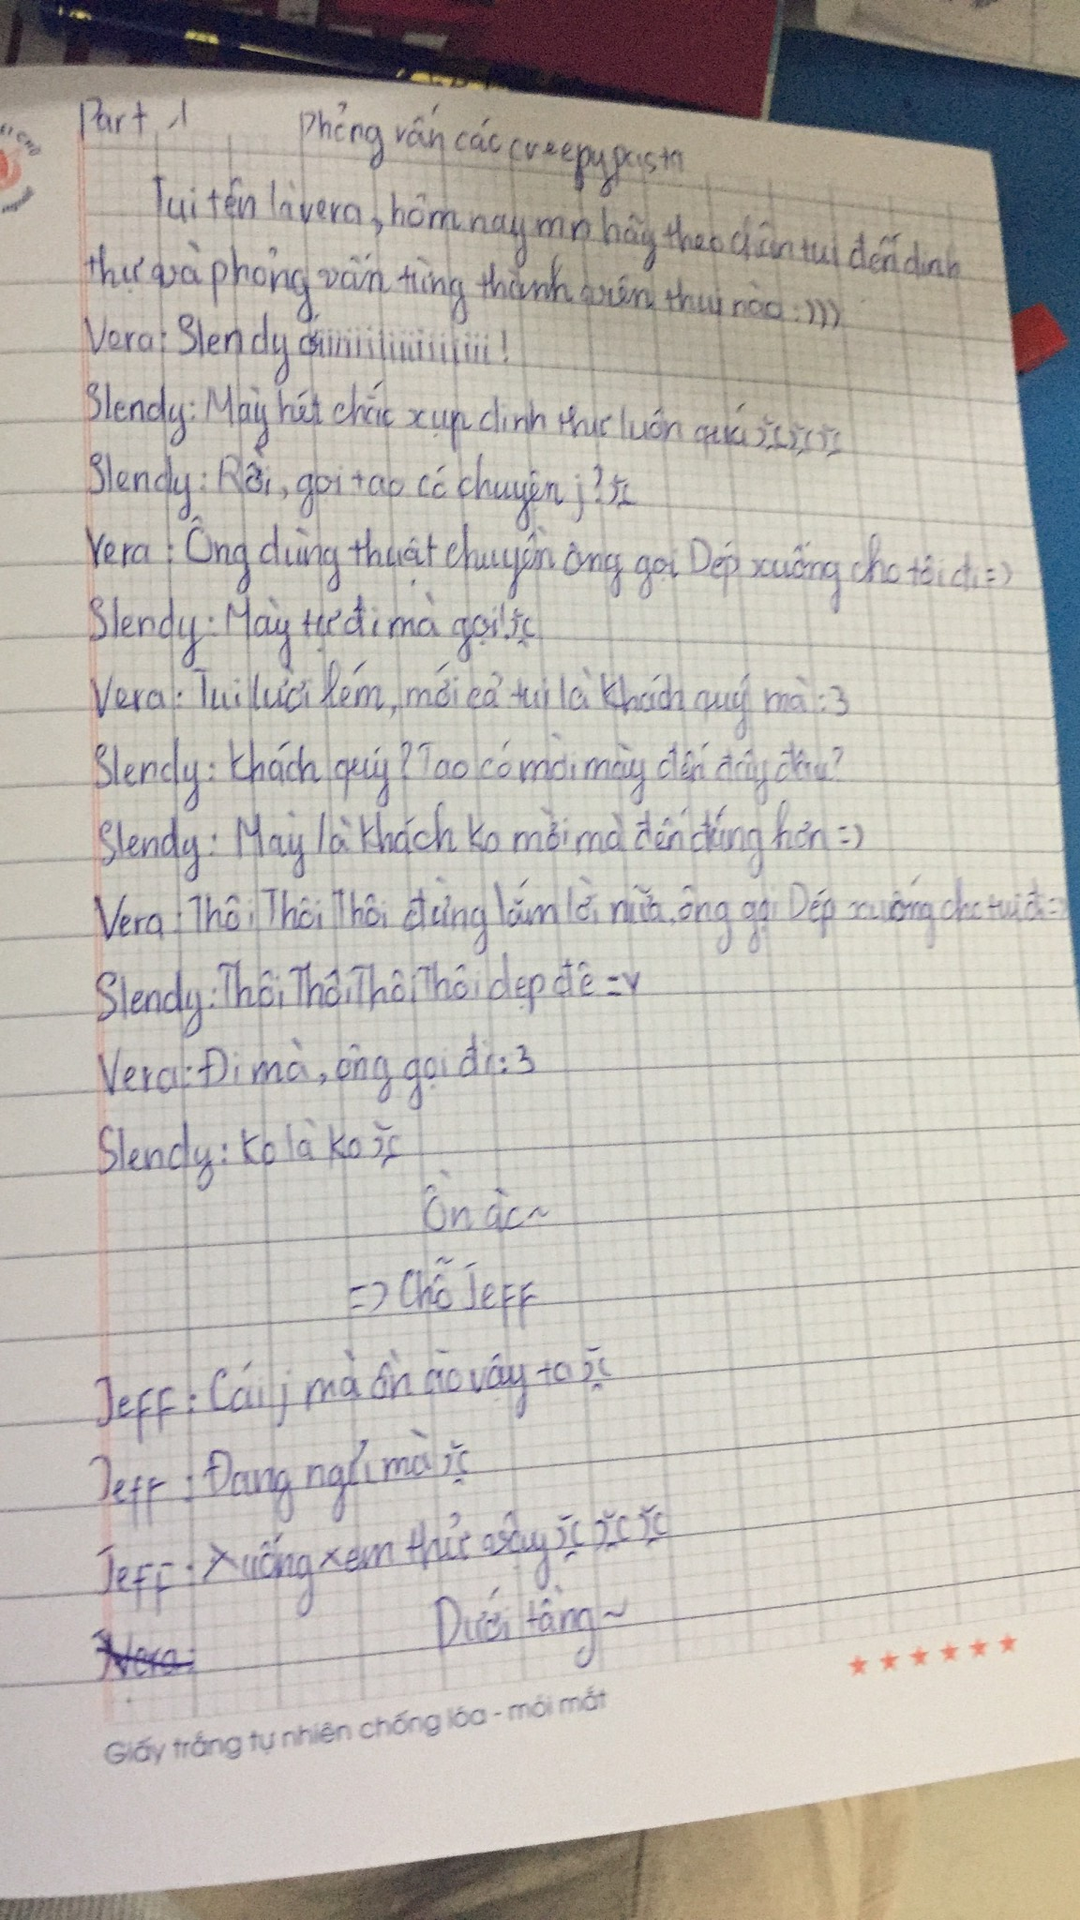 Part 1 Phỏng vấn các creepypasta
Tui tên là vera, hôm nay mn hãy theo chân tui đến dinh
thự và phỏng vấn từng thành viên thui nào :)))
Vera: Slendy ơiiiiiiiiiiiiiiiii!
Slendy: Mày hét chắc xụp dinh thự luôn quá
Slendy: Rồi, gọi tao có chuyện j?
Vera: Ông dùng thuật chuyện ông gọi Dép xuống cho tôi đi =)
Slendy: Mày tự đi mà gọi!
Vera: Tui lười lém, mới cả tui là khách quý mà :3
Slendy: Khách quý? Tao có mời mày đến đây đâu?
Slendy: Mày là khách ko mời mà đến đúng hơn =)
Vera: Thôi Thôi Thôi đừng lắm lời nữa, ông gọi Dép xuống cho tui đi =)
Slendy: Thôi Thôi Thôi Thôi dẹp đê =v
Vera: Đi mà, ông gọi đi :3
Slendy: Ko là ko
Ồn ào~
=> Chỗ Jeff
Jeff: Cái j mà ồn ào vậy ta
Jeff: Đang ngủ mà
Jeff: Xuống xem thử
Dưới tầng~
Vera:
Giấy trắng tự nhiên chống lóa - mỏi mắt